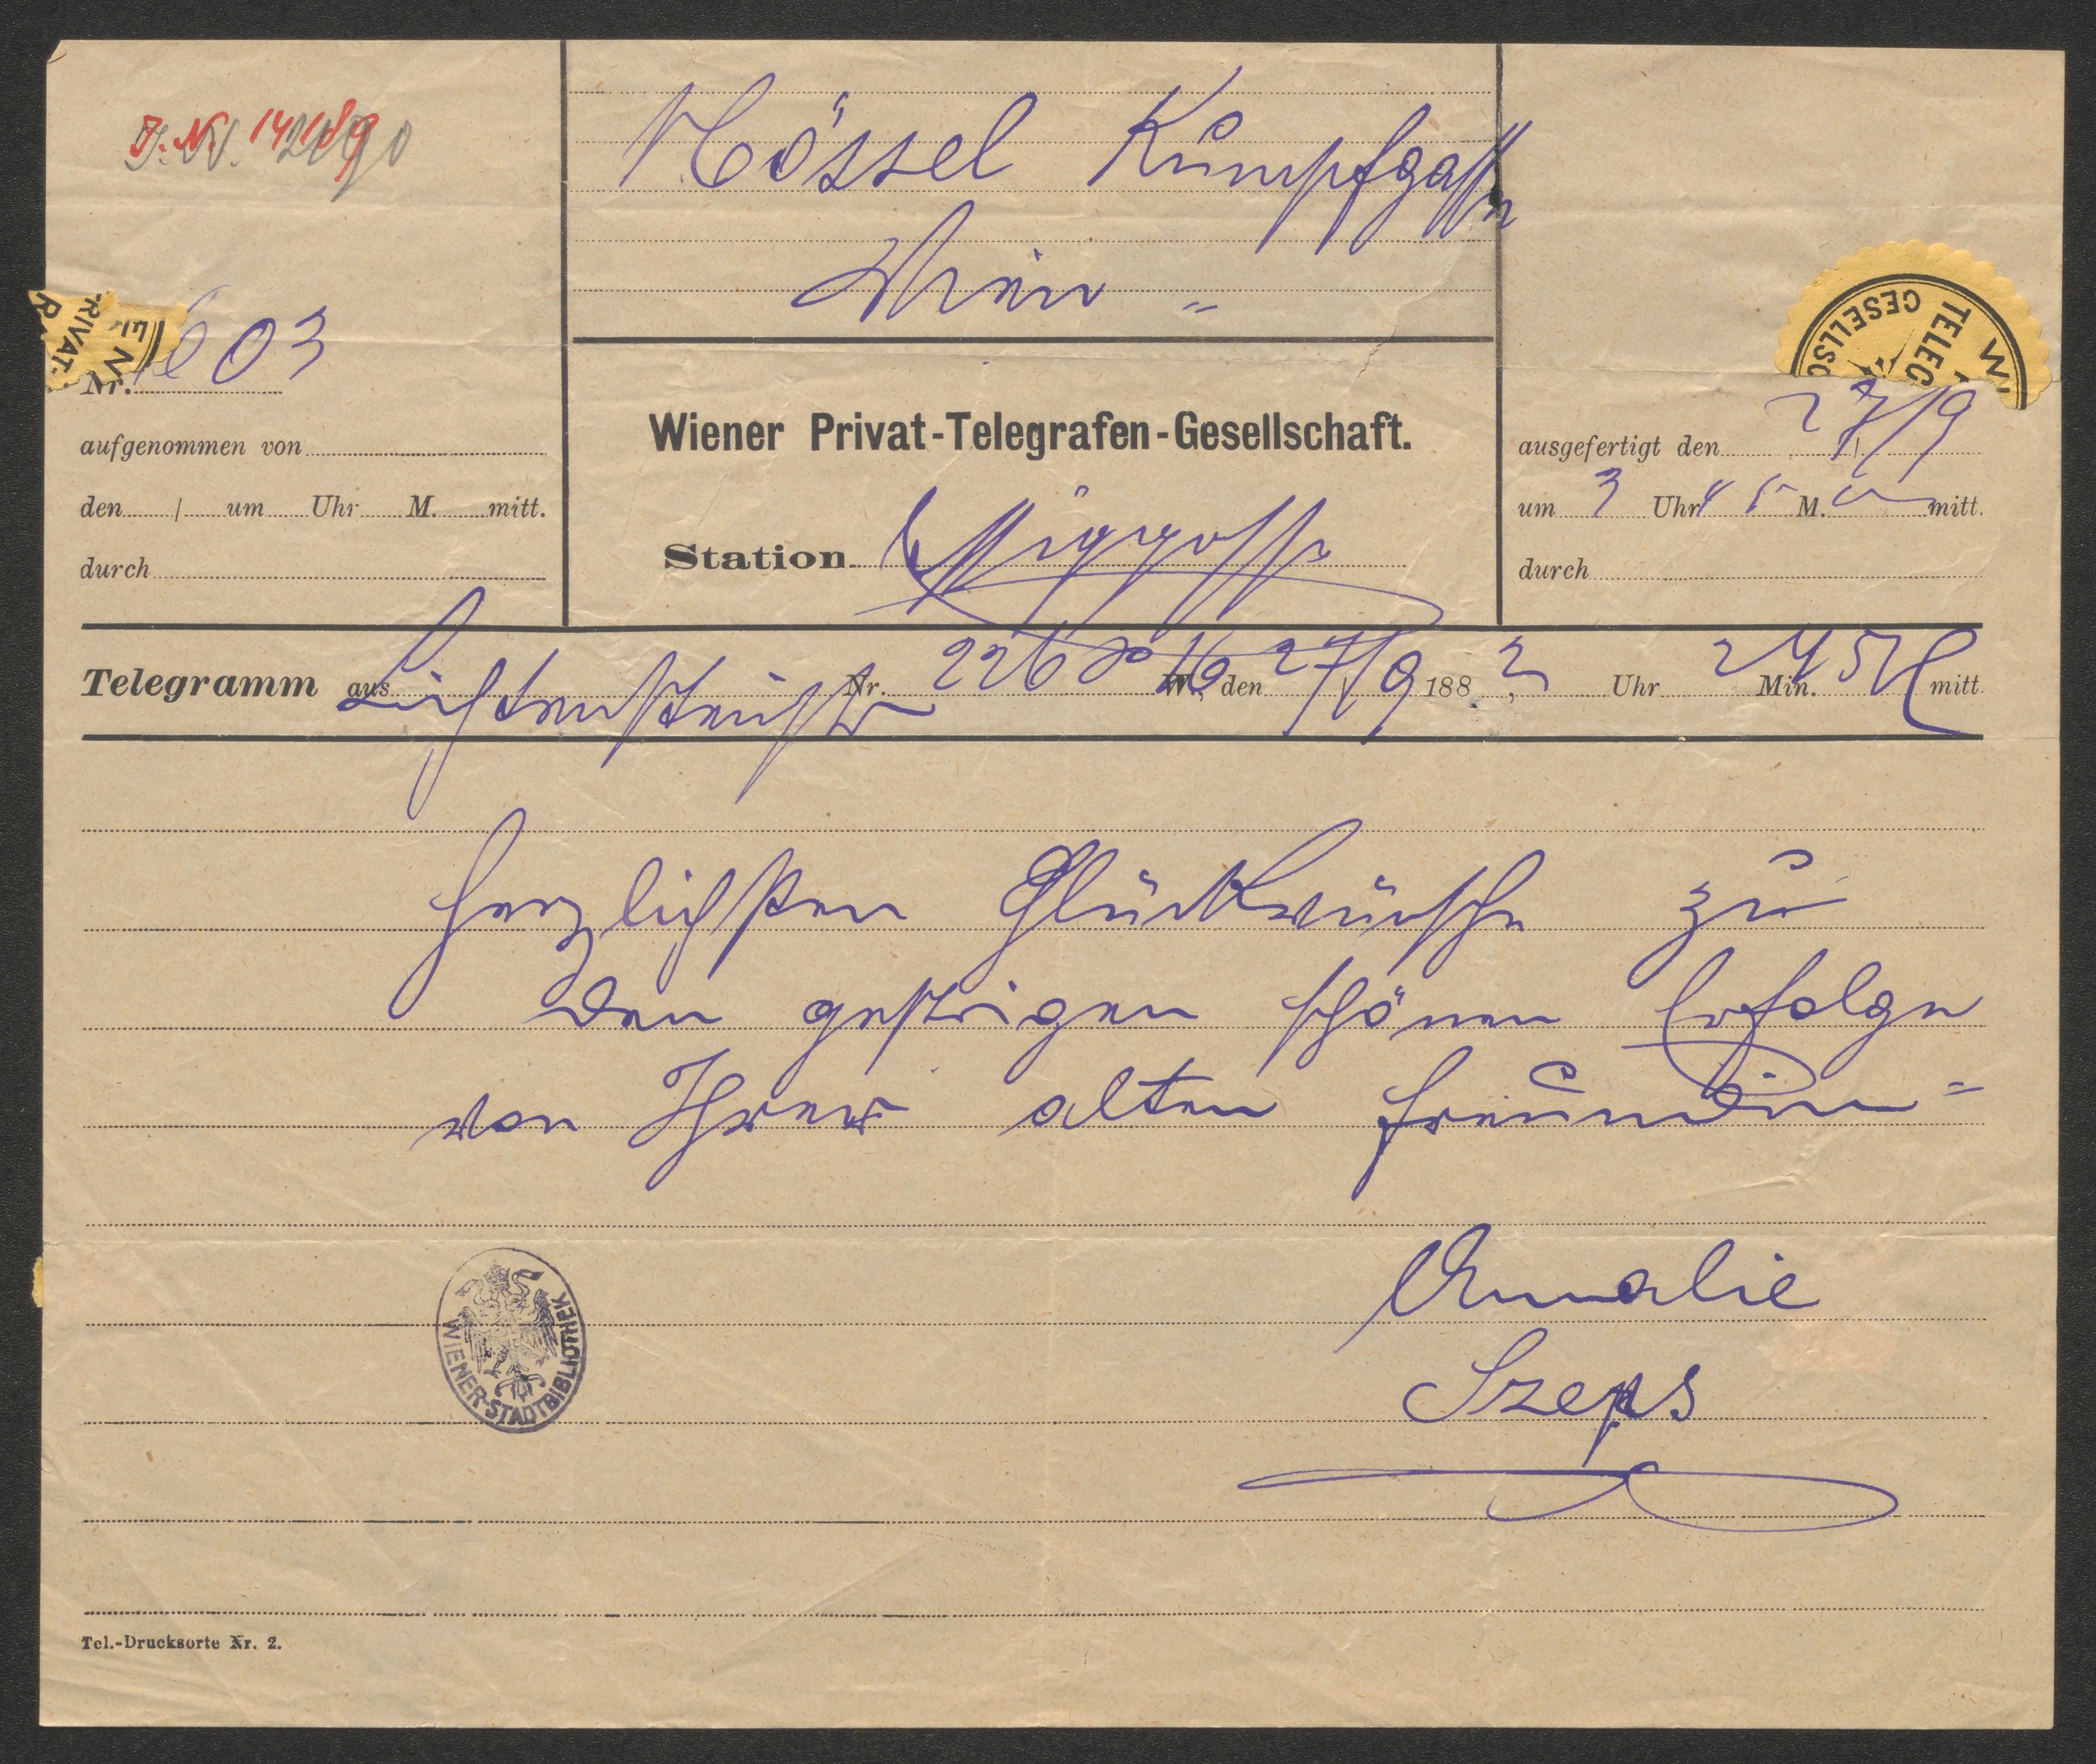 J. N. 142190
Nössel Kumpfgasse
Wien =
Nr. 1603
aufgenommen von
den / um Uhr M. mitt.
durch
Wiener Privat-Telegrafen-Gesellschaft.
Station
ausgefertigt den 27/9
um 3 Uhr 45 M. mitt.
durch
Telegramm aus Lichtensteinstr Nr. 226 W. 16 den 27/9 188 2, Uhr 2 Min. 45 mitt
Herzlichsten Glückwünsche zu
den gestrigen schönen Erfolge
von Ihrer alten Freundin =
Amalie
Szeps
WIENER-STADTBIBLIOTHEK
Tel.-Drucksorte Nr. 2.